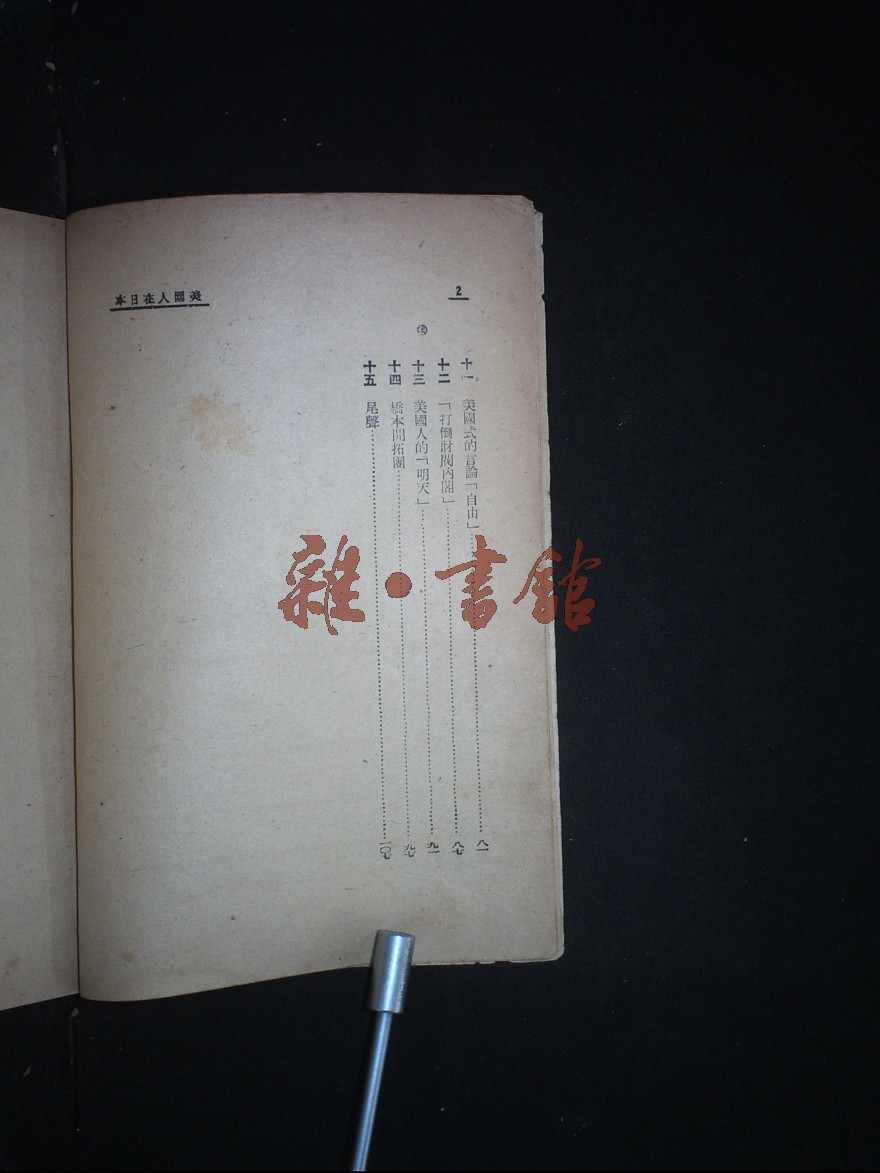 美國人在日本
2
十一 美國式的言論「自由」……八一
十二 「打倒財閥內閣」……八七
十三 美國人的「明天」……九一
十四 橋本開拓團……九七
十五 尾聲……一〇七
雜·書館